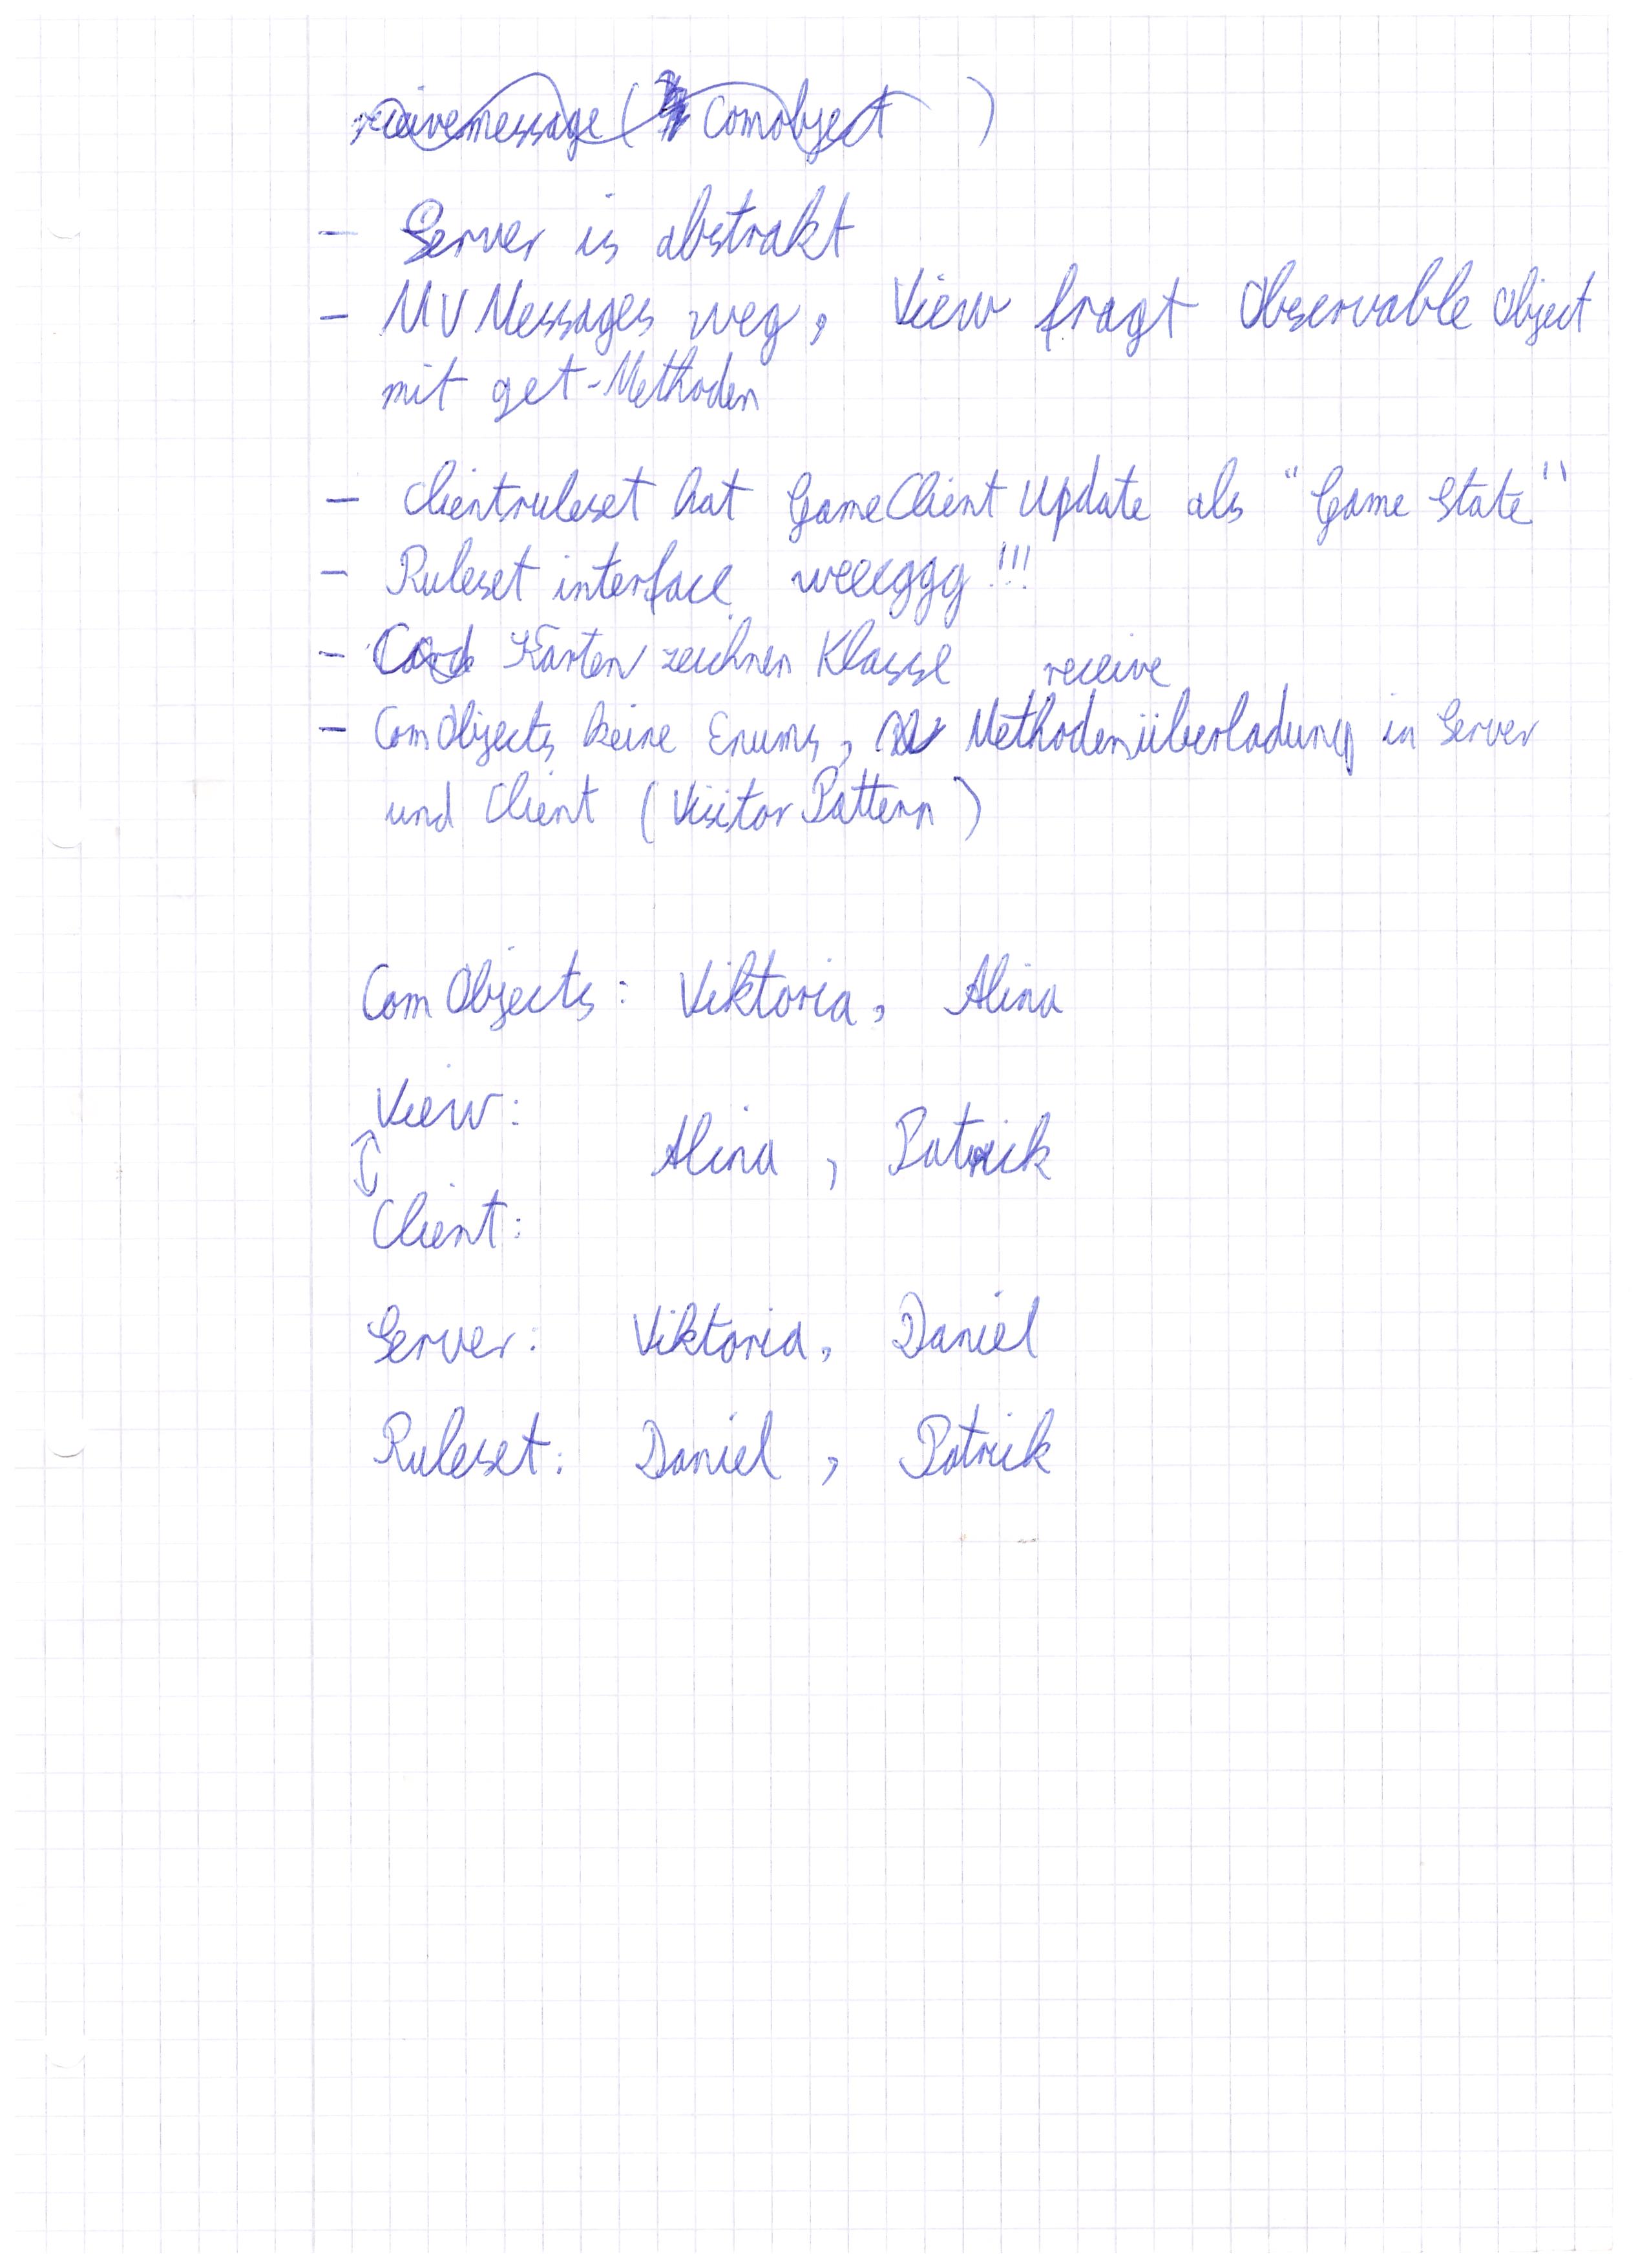 receivemessage( Comobject )
- Server is abstrakt
- MVMessages weg, View fragt Observable Object
mit get-Methoden
- Clientruleset hat GameClient Update als "Game State"
- Ruleset interface weeeggg!!!
- Card Karten zeichnen Klasse
receive
- ComObjects keine Enums, Methodenüberladung in Server
und Client (Visitor Pattern)
Com Objects: Viktoria, Alina
View:
Alina, Patrick
Client:
Server: Viktoria, Daniel
Ruleset: Daniel, Patrick